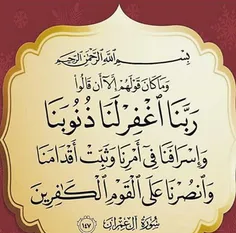 بِسْمِ اللَّهِ الرَّحْمَٰنِ الرَّحِيمِ
وَمَا كَانَ قَوْلَهُمْ إِلَّا أَن قَالُوا
رَبَّنَا اغْفِرْ لَنَا ذُنُوبَنَا
وَإِسْرَافَنَا فِي أَمْرِنَا وَثَبِّتْ أَقْدَامَنَا
وَانصُرْنَا عَلَى الْقَوْمِ الْكَافِرِينَ
سُورَةُ آلِ عِمْرَان ١٤٧